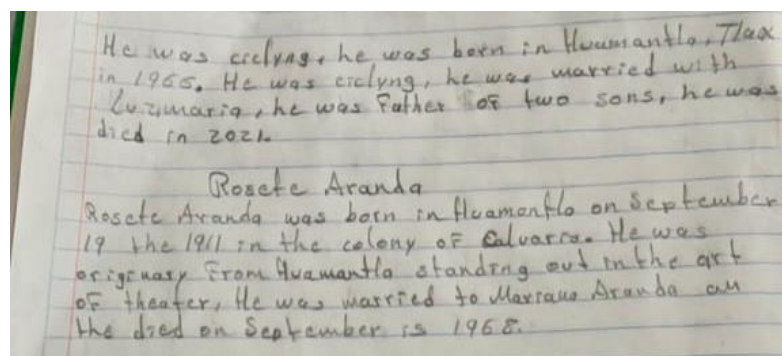 He was ciclyng, he was born in Huumantla, Tlax
in 1966. He was ciclyng, he was married with
Luzmaria, he was Father of two sons, he was
died in 2021.
Rosete Aranda
Rosete Aranda was born in Huamantla on September
19 the 1911 in the colony of Calvario. He was
originary From Huamantla standing out in the art
of theater, He was married to Mariano Aranda an
the died on September is 1968.